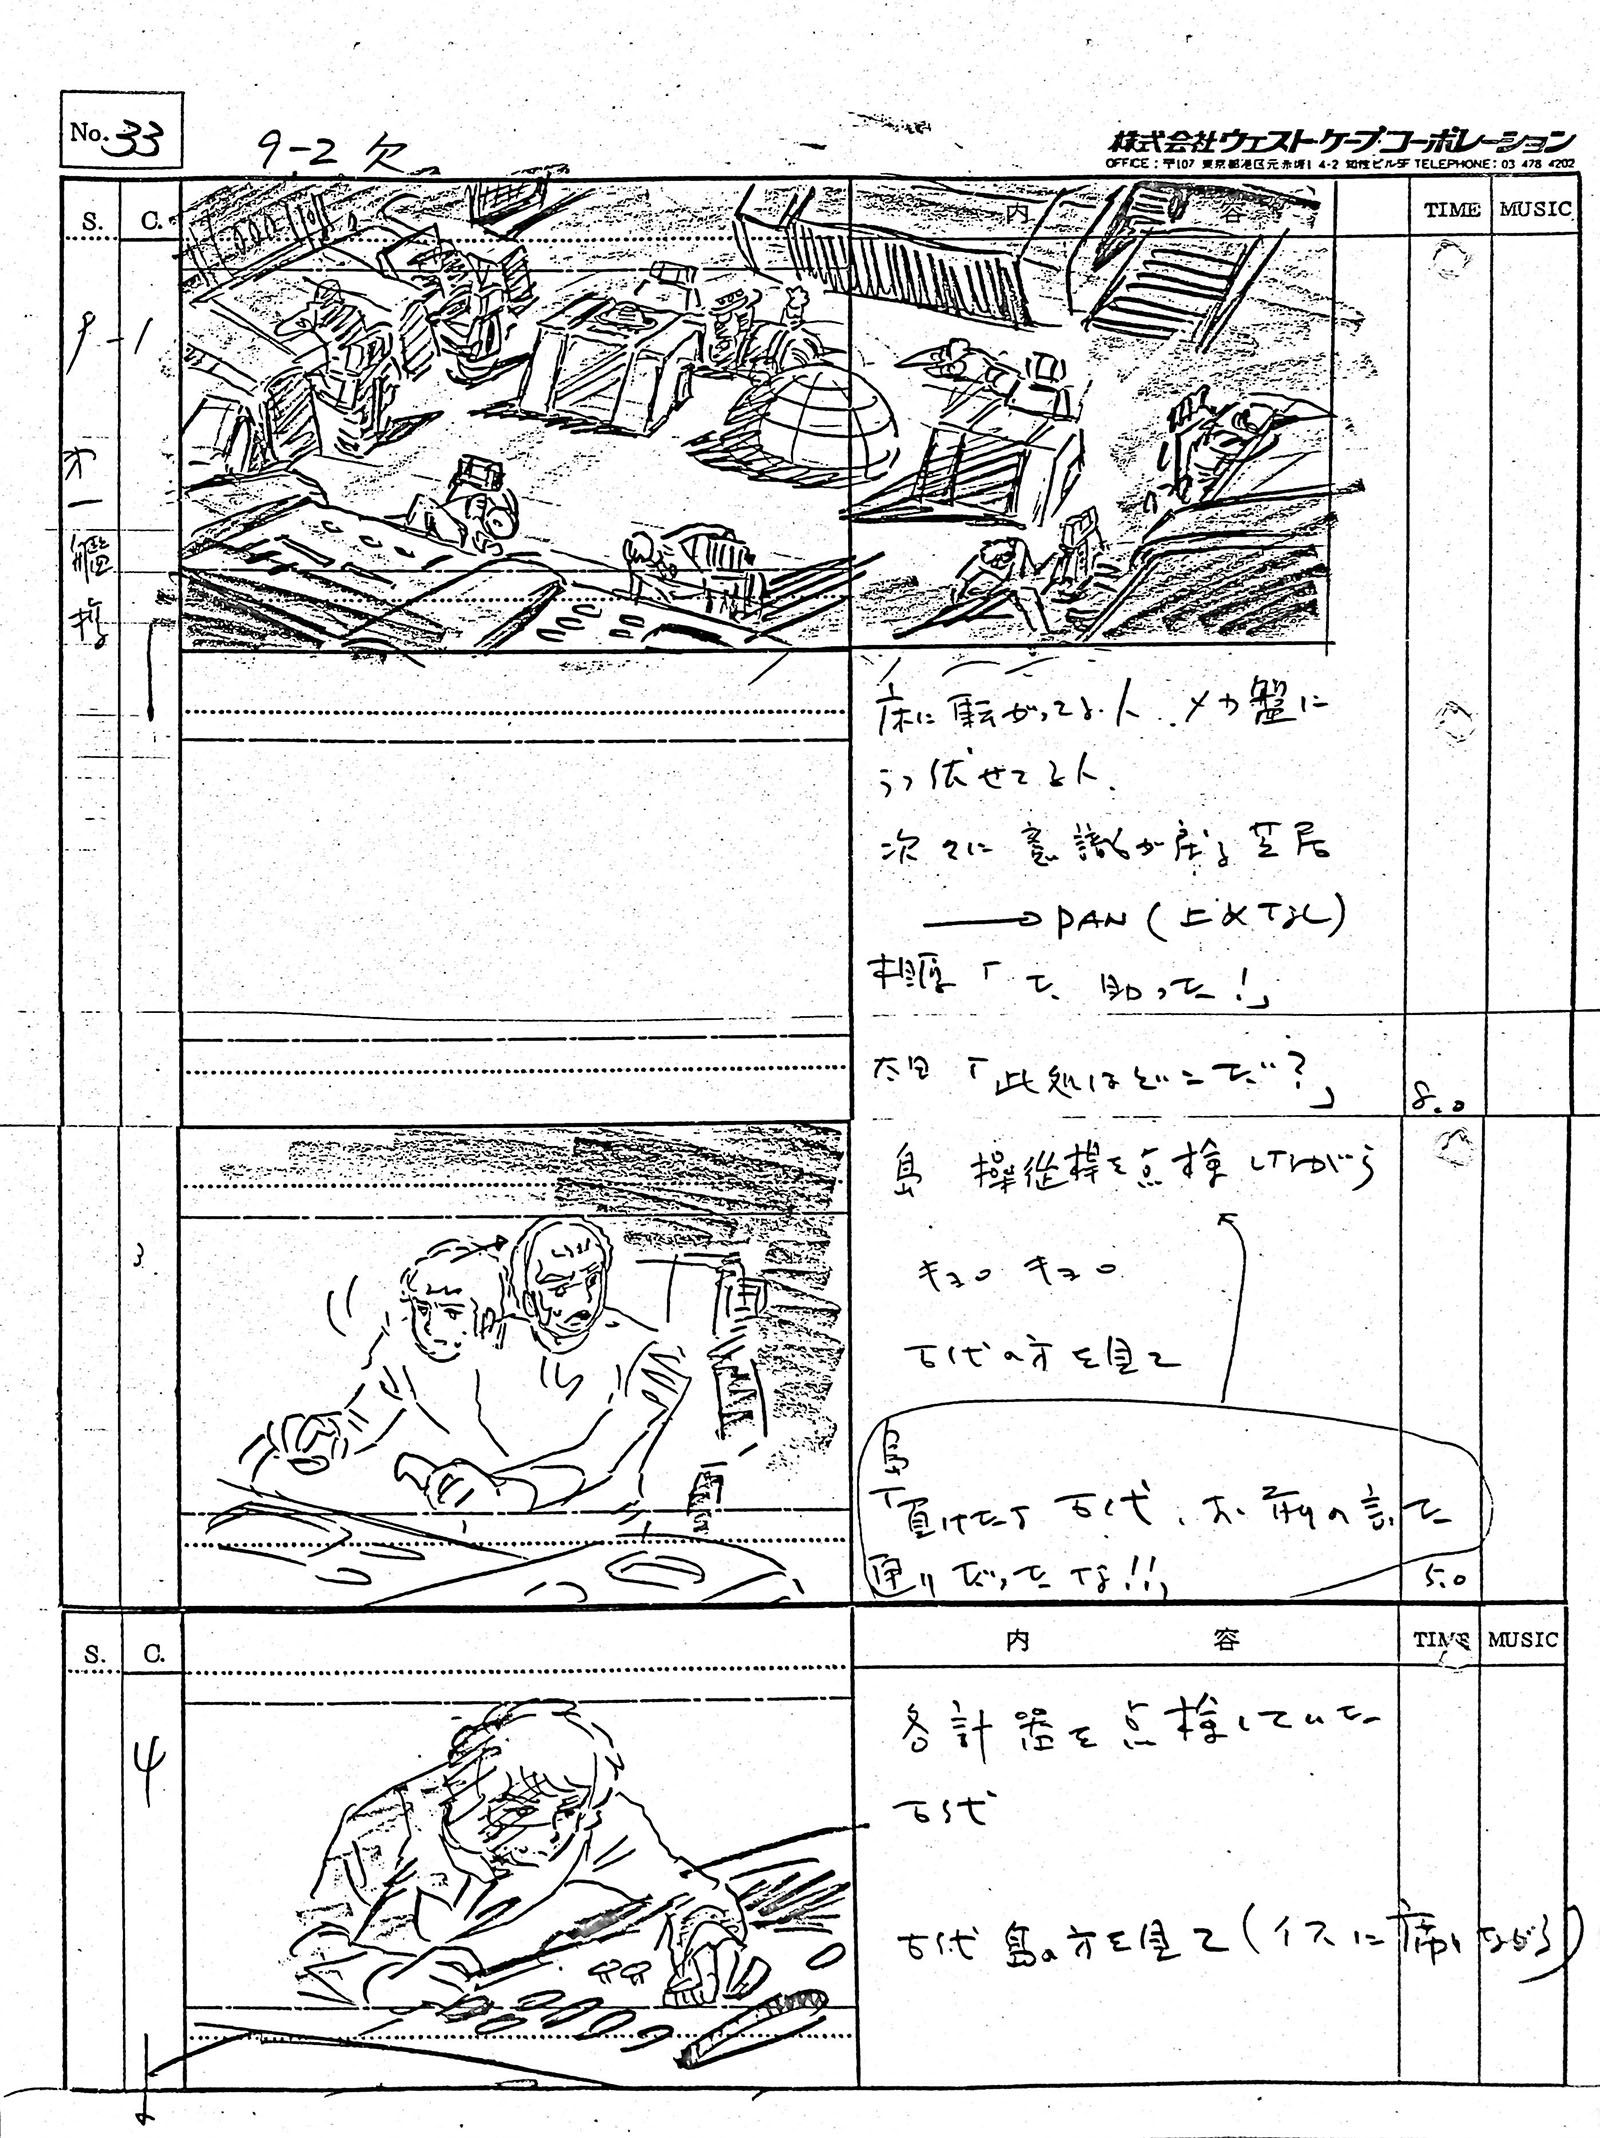 No. 33
9-2 欠
株式会社ウェスト・ケープ・コーポレーション
OFFICE : 〒107 東京都港区元赤坂1 4-2 知性ビル5F TELEPHONE : 03 478 4202
S. C. 内 容 TIME MUSIC
9-1
才一艦橋
床に転がってる人、メカ盤に
うつ伏せてる人、
次々に意識が戻る芝居
PAN (上メ下なし)
相原「た、助った!」
太田「此処はどこだ?」
8.0
3
島 操従桿を点検しながら
キョロ キョロ
古代の方を見て
島
「負けたよ 古代、お前の言った
通りだったな!!」
5.0
S. C. 内 容 TIME MUSIC
4
各計器を点検していた
古代
古代 島の方を見て(イスに席りながら)